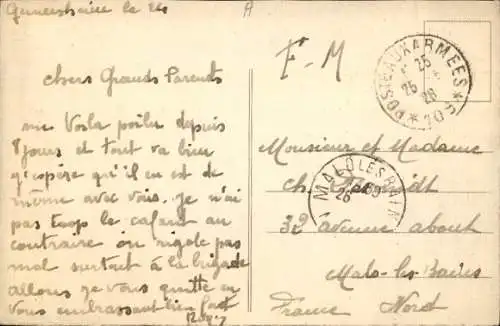 le 24
A
F-M
POSTE AUX ARMEES
25
25
28
chers Grands Parents
me voila poilu depuis
8 jours et tout va bien
j'espère qu'il en est de
même avec vous. je n'ai
pas trop le cafard au
contraire on rigole pas
mal surtout à la brigade
allons je vous quitte en
vous embrassant bien fort
Monsieur et Madame
ch.
MALO LES BAINS
26
32 avenue about
Malo-les-Bains
France Nord